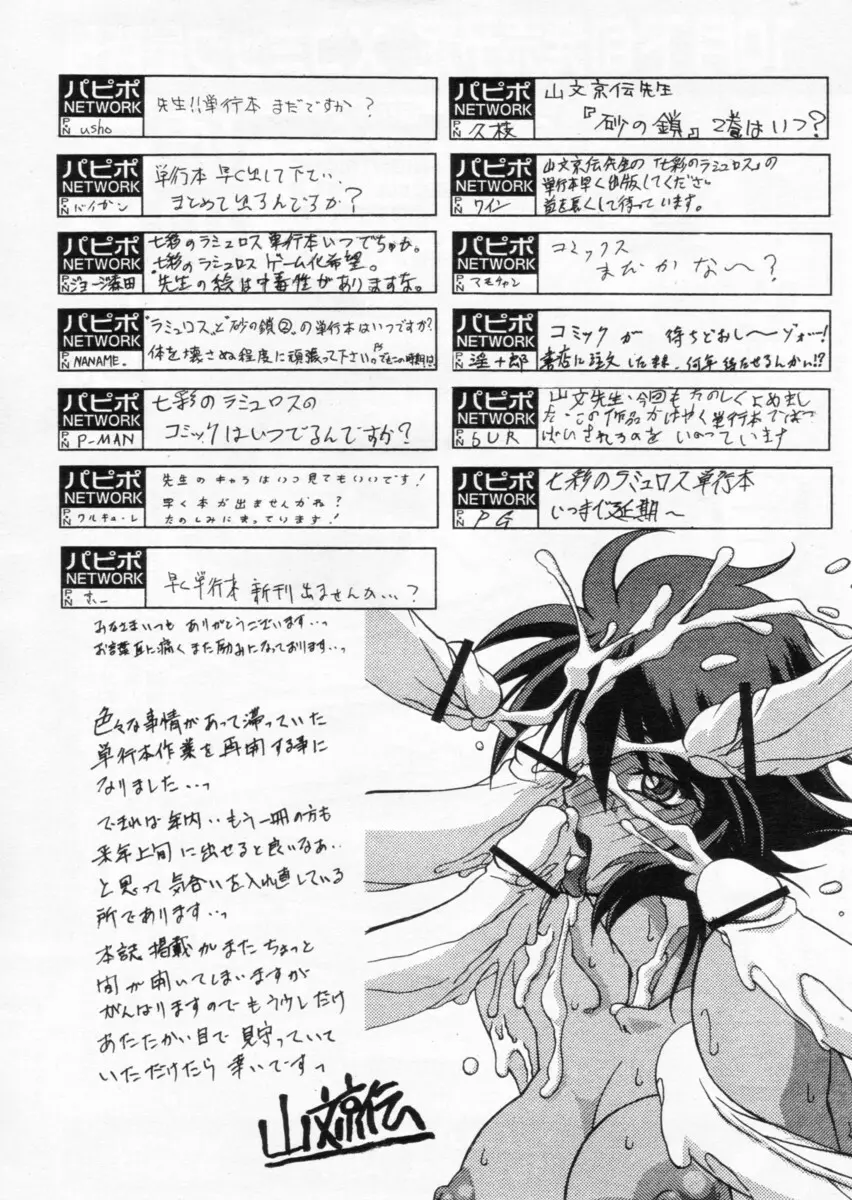 パピポ
NETWORK
PN usho
先生!!単行本 まだですか?
パピポ
NETWORK
PN バイガン
単行本 早く出して下さい、
まとめて出るんですか?
パピポ
NETWORK
PN ジョージ森田
七彩のラミュロス 単行本いつでちゅか。
七彩のラミュロス ゲーム化希望。
先生の絵は中毒性がありますな。
パピポ
NETWORK
PN NANAME.
"ラミュロス"と"砂の鎖②"の単行本はいつですか?
体を壊さぬ程度に頑張って下さい。
パピポ
NETWORK
PN P-MAN
七彩のラミュロスの
コミックはいつでるんですか?
パピポ
NETWORK
PN ワルキューレ
先生のキャラはいつ見てもいいです!
早く本が出ませんかね?
たのしみにまっています!
パピポ
NETWORK
PN ホー
早く単行本 新刊 出ませんか…?
パピポ
NETWORK
PN 久枝
山文京伝先生
『砂の鎖』2巻はいつ?
パピポ
NETWORK
PN ワイン
山文京伝先生の「七彩のラミュロス」の
単行本早く出版してくださ。
首を長くして待っています。
パピポ
NETWORK
PN マモチャン
コミックス
まだかな〜?
パピポ
NETWORK
PN 淫十郎
コミックが 待ちどおし〜ゾォー!
書店に注文したまま、何年待たせるんかい!?
パピポ
NETWORK
PN SUR
山文先生、今回もたのしくよめまし
た。この作品がはやく単行本ではつ
ばいされるのを いのっています
パピポ
NETWORK
PN PG
七彩のラミュロス単行本
いつまで延期〜
みなさまいつも ありがとうございます…っ
お言葉耳に痛く また励みになっております…っ
色々な事情があって滞っていた
単行本作業を再開する事に
なりました…っ
できれば年内‥もう一冊の方も
来年上旬に出せると良いなぁ‥
と思って気合いを入れ直している
所であります…っ
本誌掲載がまたちょっと
間が開いてしまいますが
がんばりますのでもう少しだけ
あたたかい目で見守っていて
いただけたら幸いですっ
山文京伝